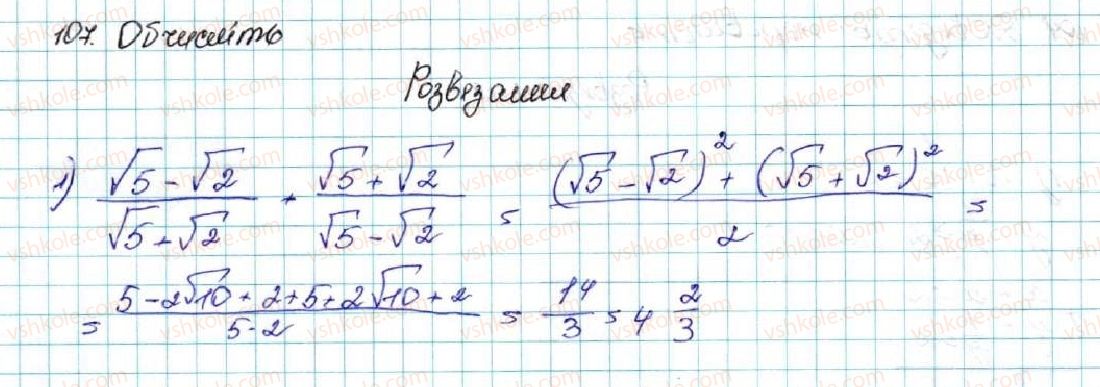 107. Обчисліть
Розвезання
1) (√5 - √2)/(√5 + √2) + (√5 + √2)/(√5 - √2) = ((√5 - √2)² + (√5 + √2)²)/2 =
= (5 - 2√10 + 2 + 5 + 2√10 + 2)/(5 - 2) = 14/3 = 4 2/3